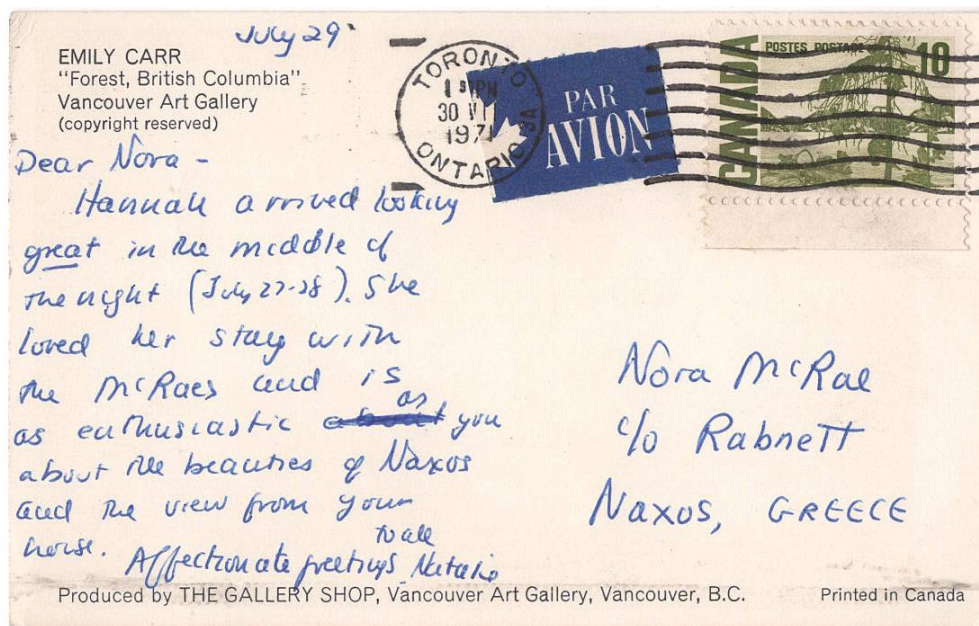 July 29
EMILY CARR
"Forest, British Columbia"
Vancouver Art Gallery
(copyright reserved)
TORONTO
PM
30 VI
1971
ONTARIO
3A
PAR
AVION
CANADA
POSTES POSTAGE
10
Dear Nora -
Hannah arrived looking
great in the middle of
the night (July 27-28). She
loved her stay with
the McRaes and is
as enthusiastic as you
about the beauties of Naxos
and the view from your
house.
Affectionate greetings to all
Natalie
Nora McRae
c/o Rabnett
Naxos, GREECE
Produced by THE GALLERY SHOP, Vancouver Art Gallery, Vancouver, B.C.
Printed in Canada